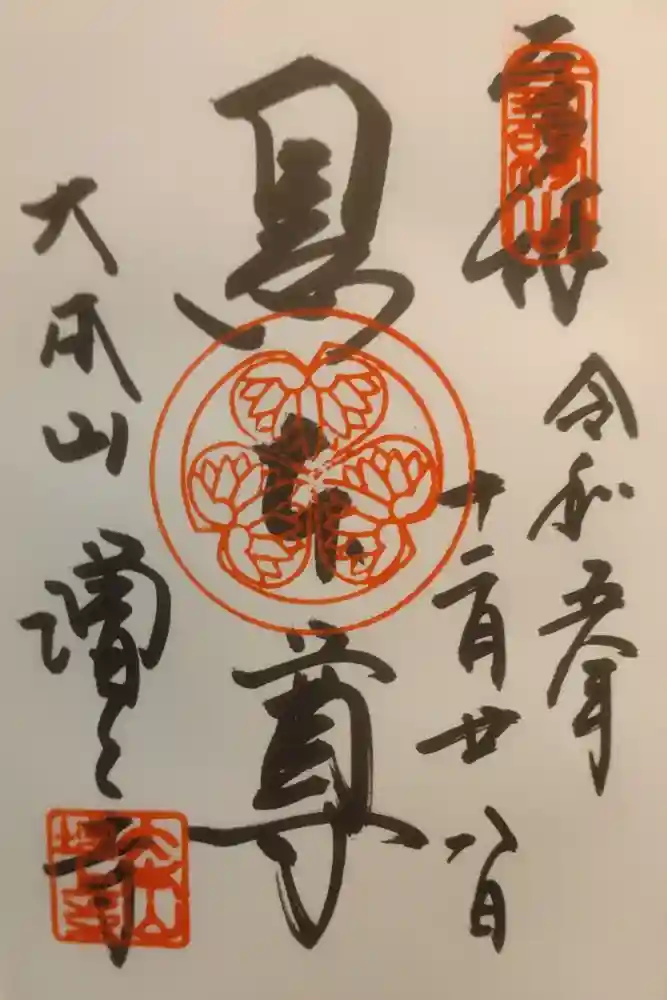 奉拝
三縁山
令和五年
十二月廿八日
黒本尊
大本山 増上寺